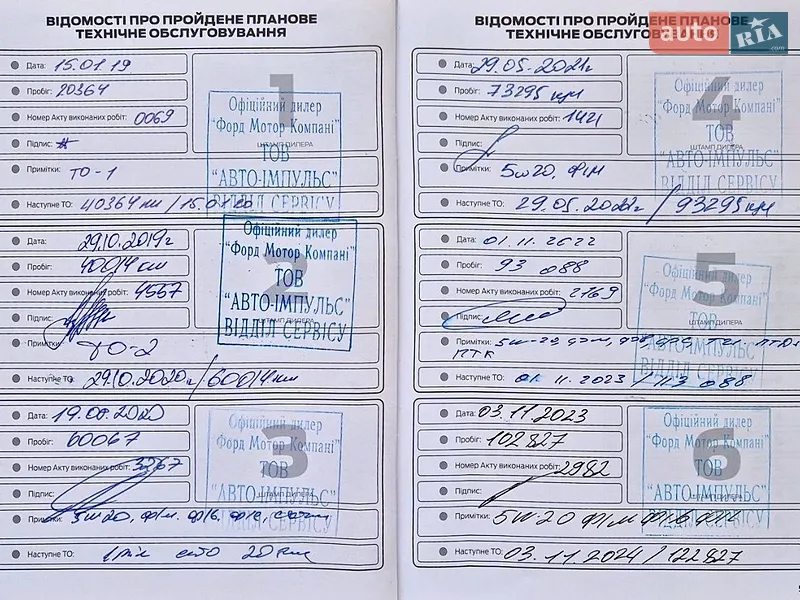 ВІДОМОСТІ ПРО ПРОЙДЕНЕ ПЛАНОВЕ
ТЕХНІЧНЕ ОБСЛУГОВУВАННЯ
1
Дата: 15.01.19
Пробіг: 20364
Номер Акту виконаних робіт: 0069
Підпис:
ШТАМП ДИЛЕРА
Примітки: ТО-1
Наступне ТО: 40364 км / 15.01.20
Офіційний дилер
"Форд Мотор Компані"
ТОВ
"АВТО-ІМПУЛЬС"
ВІДДІЛ СЕРВІСУ
2
Дата: 29.10.2019г
Пробіг: 40014 км
Номер Акту виконаних робіт: 4557
Підпис:
Примітки: ТО-2
Наступне ТО: 29.10.2020г/60014 км
Офіційний дилер
"Форд Мотор Компані"
ТОВ
"АВТО-ІМПУЛЬС"
ВІДДІЛ СЕРВІСУ
3
Дата: 19.08.2020
Пробіг: 60067
Номер Акту виконаних робіт: 3267
Підпис:
ШТАМП ДИЛЕРА
Примітки: 5w20, ф/м, ф/в, ф/с,
Наступне ТО:
Офіційний дилер
"Форд Мотор Компані"
ТОВ
"АВТО-ІМПУЛЬС"
ВІДДІЛ СЕРВІСУ
ВІДОМОСТІ ПРО ПРОЙДЕНЕ ПЛАНОВЕ
ТЕХНІЧНЕ ОБСЛУГОВУВАННЯ
auto RIA.com
4
Дата: 29.05.2021г
Пробіг: 73295 км
Номер Акту виконаних робіт: 1421
Підпис:
ШТАМП ДИЛЕРА
Примітки: 5w20, ф/м
Наступне ТО: 29.05.2022г / 93295 км
Офіційний дилер
"Форд Мотор Компані"
ТОВ
"АВТО-ІМПУЛЬС"
ВІДДІЛ СЕРВІСУ
5
Дата: 01.11.2022
Пробіг: 93 088
Номер Акту виконаних робіт: 2169
Підпис:
ШТАМП ДИЛЕРА
Примітки: 5w-20,
ПТК
Наступне ТО: 01.11.2023 / 113 088
Офіційний дилер
"Форд Мотор Компані"
ТОВ
"АВТО-ІМПУЛЬС"
ВІДДІЛ СЕРВІСУ
6
Дата: 03.11.2023
Пробіг: 102827
Номер Акту виконаних робіт: 2982
Підпис:
ШТАМП ДИЛЕРА
Примітки: 5W-20 ф/м ф/в
Наступне ТО: 03.11.2024 / 122827
Офіційний дилер
"Форд Мотор Компані"
ТОВ
"АВТО-ІМПУЛЬС"
ВІДДІЛ СЕРВІСУ